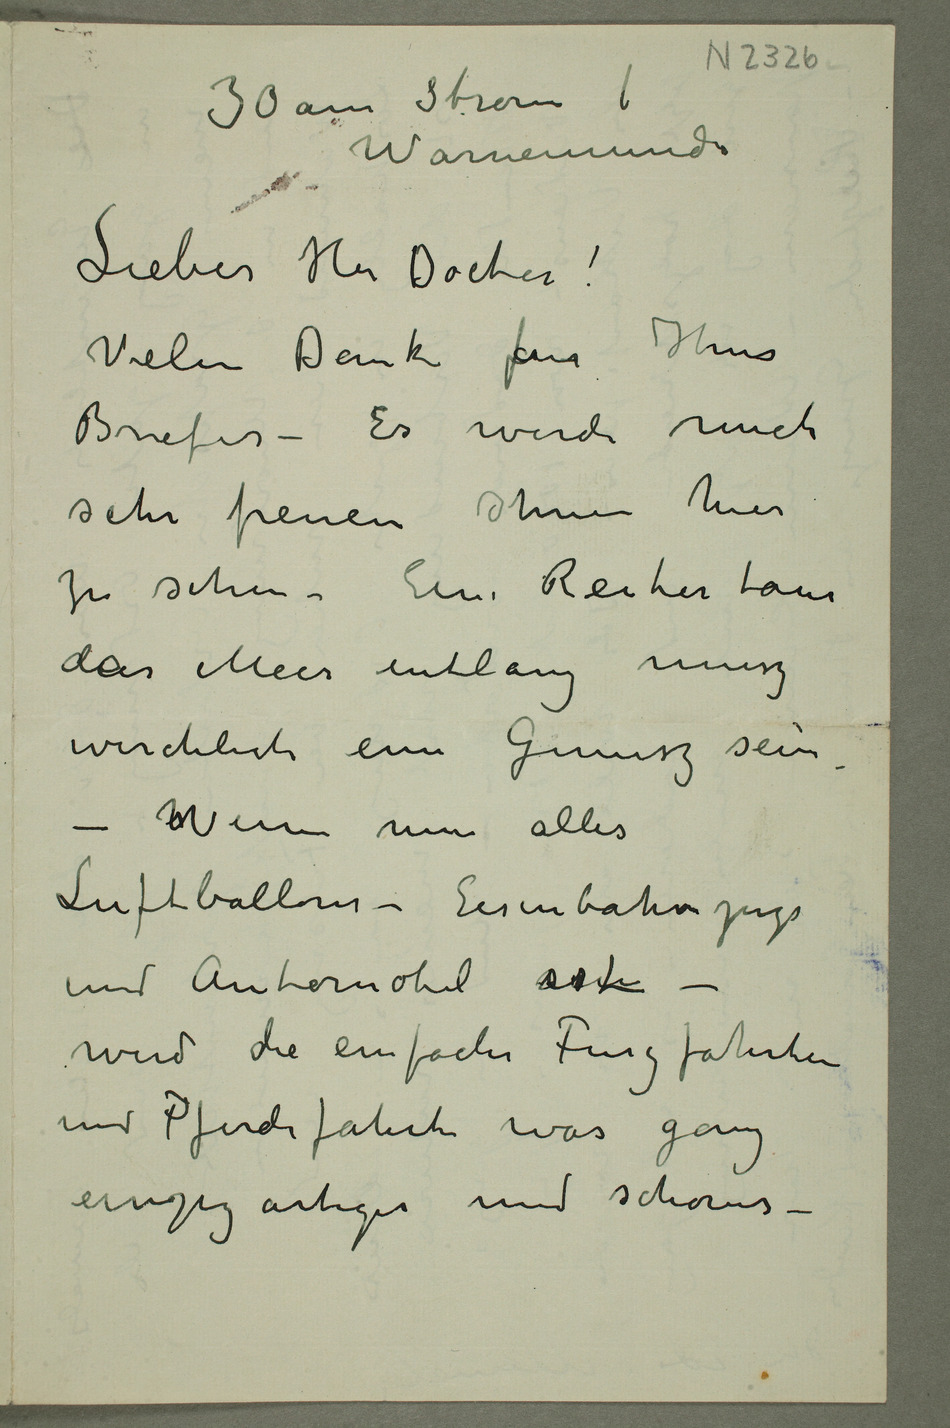 N 2326
30 am Strom
Warnemunde
Lieber Her Docter!
Vielen Danke fur Ihres
Briefes – Es werde mich
sehr freuen Ihnen hier
zu sehen – Eine Reitertour
das Meer entlang musz
wircklich ein Genusz sein –
– Wenn nun alles
Luftballons – Eisenbahnzugs
und Automobil –
wird die einfache Fuszfahrten
und Pferdefahrte was ganz
einzig artiges und schones –